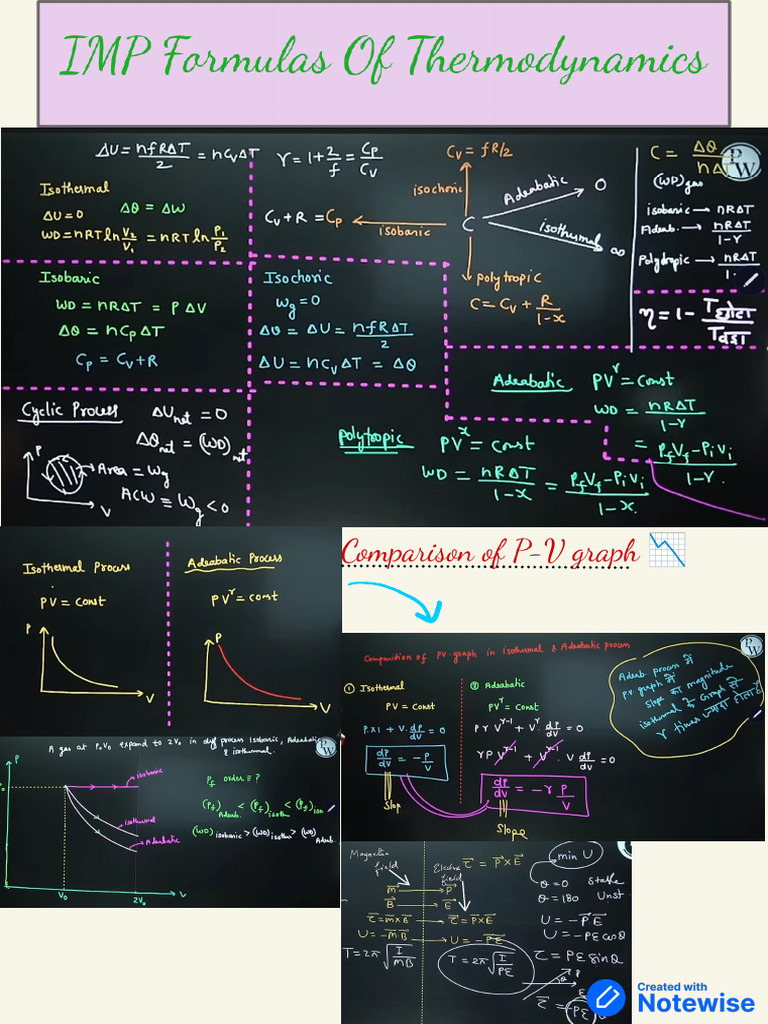 IMP Formulas Of Thermodynamics
ΔU = nfRΔT/2 = nCvΔT
γ = 1 + 2/f = Cp/Cv
Isothermal
ΔU = 0 ΔQ = ΔW
WD = nRT ln V2/V1 = nRT ln P1/P2
Cv = fR/2
isochoric
Adeabatic 0
Cv + R = Cp
isobaric
C
isothermal ∞
polytropic
C = Cv + R/1-x
C = ΔQ/nΔT
PW
(WD)gas
isobaric → nRΔT
Adeab. → nRΔT/1-γ
Polytropic → nRΔT/1-
η = 1 - Tछोटा/Tबड़ा
Isobaric
WD = nRΔT = PΔV
ΔQ = nCpΔT
Cp = Cv + R
Isochoric
Wg = 0
ΔQ = ΔU = nfRΔT/2
ΔU = nCvΔT = ΔQ
Adeabatic PV^γ = const
WD = nRΔT/1-γ
= PfVf - PiVi/1-γ.
Cyclic Process ΔUnet = 0
ΔQnet = (WD)net
P
Area = Wg
ACW = Wg < 0
V
polytropic PV^x = const
WD = nRΔT/1-x = PfVf - PiVi/1-x.
Isothermal Process
PV = const
P
V
Adeabatic Process
PV^γ = const
P
V
Comparison of P-V graph
Comparition of PV-graph in isothermal & Adeabatic process
PW
① Isothermal
PV = Const
P×1 + V·dP/dV = 0
dP/dV = -P/V
Slop
② Adeabatic
PV^γ = Const
PγV^γ-1 + V^γ·dP/dV = 0
γPV^γ-1 + V^γ-1·V dP/dV = 0
dP/dV = -γP/V
Slope
Adeab. process में
PV graph में
slope का magnitude
isothermal के Graph से
γ times ज्यादा होता है
A gas at P0V0 expand to 2V0 in diff process Isobaric, Adeabatic
& isothermal.
PW
P
isobaric
isothermal
Adeabatic
V0 2V0 V
Pf order = ?
(Pf)Adeab. < (Pf)isoth < (Pf)iso
(WD)isobaric > (WD)isother > (WD)Adeab.
Magnetic
field
m → P
B → E
τ = m×B
U = -m·B
T = 2π√I/MB
Electric
field
τ = P×E
τ = P×E
U = -P·E
T = 2π√I/PE
min U
θ = 0 Stable
θ = 180 Unst
U = -P·E
U = -PE cosθ
τ = PE sinθ
P
θ
E
Created with
Notewise